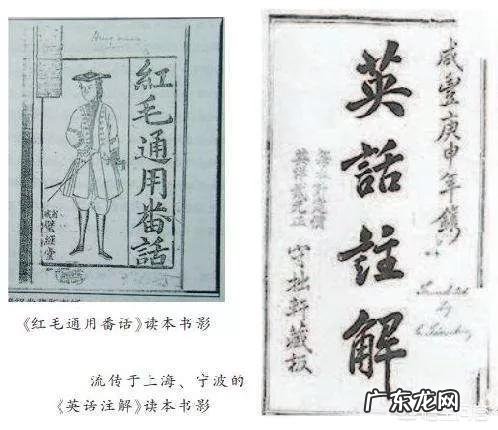 紅毛通用番話
省城
璧經堂
《红毛通用番话》读本书影
流传于上海、宁波的
《英语注解》读本书影
咸豐庚申年鐫
英話註解
守拙軒藏板
广东龙网